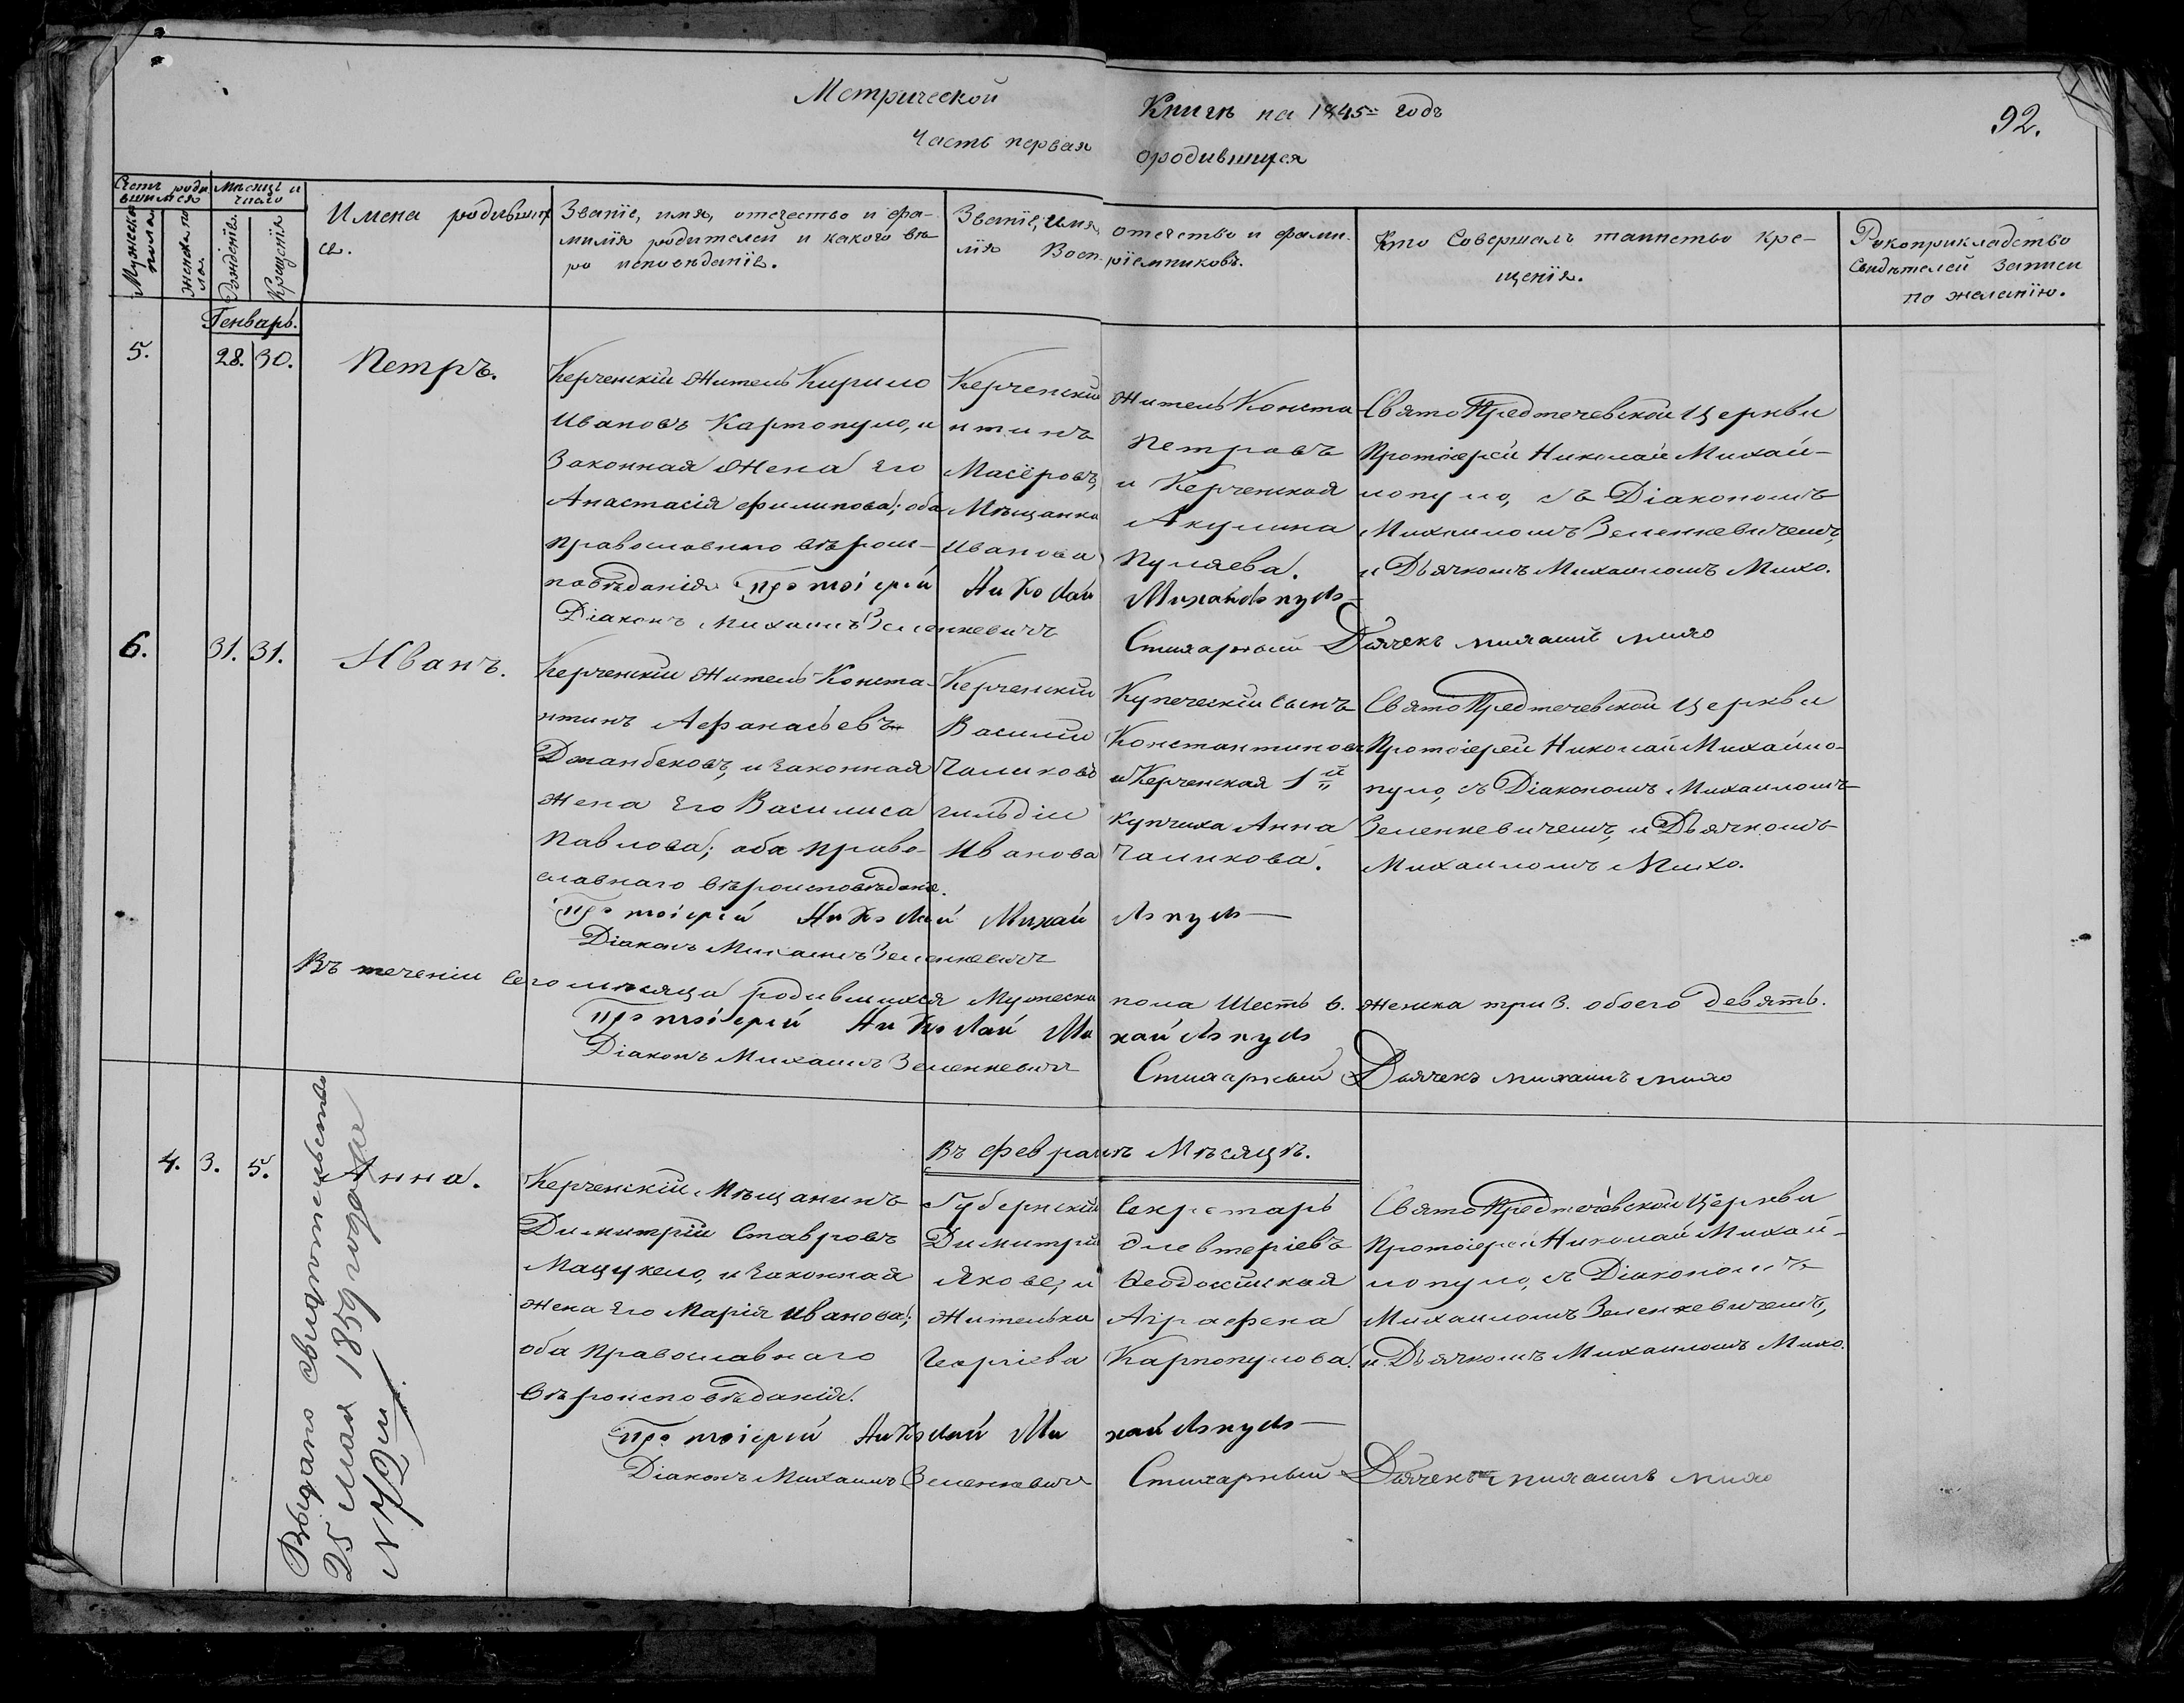 Метрической Книги на 1845= годъ
92.
Часть первая ородившихся
Счетъ роди
вшимся
Мѣсяцъ и
число
Мужеска
пола
Женска по
ла.
Рожденія.
Крещенія
Имена родивших
ся.
Званіе, имя, отечество и фа-
милія родителей и какого вѣ
ро исповѣданія.
Званіе, имя, отечество и фами-
лія Воспріемниковъ.
Кто Совершалъ таинство кре-
щенія.
Рукоприкладство
Свидѣтелей записи
по желанію.
Генварь.
5.
28. 30.
Петръ.
Керченскій Житель Кирило
Ивановъ Картопуло, и
Законная Жена Его
Анастасія Филипова; оба
православнаго вѣроис-
повѣданія
Керченскій Житель Конста-
нтинъ Петровъ
Масёровъ, и Керченская
Мѣщанка Акулина
Иванова Пуляева.
Свято Предтечевской Церкви
Протоіерей Николай Михай-
лопуло, съ Діакономъ
Михаиломъ Зеленкевичемъ,
и Дьячкомъ Михаиломъ Михо.
Протоіерей Николай Михайлопуло
Діаконъ Михаилъ Зеленкевичъ
Стихарный Дьячекъ михаилъ михо
6.
31. 31.
Иванъ.
Керченскій Житель Конста-
нтинъ Афанасьевъ
Джанбековъ, и законная
Жена Его Василиса
Павлова; оба право-
славнаго вѣроисповѣданія.
Керченскій Купеческій сынъ
Василий Константиновъ
Чаликовъ и Керченская 1й
гильдіи Купчиха Анна
Иванова Чаликова.
Свято Предтечевской Церкви
Протоіерей Николай Михайло-
пуло, съ Діакономъ Михаиломъ
Зеленкевичемъ, и Дьячкомъ
Михаиломъ Михо.
Протоіерей Николай Михайлопуло
Діаконъ Михаилъ Зеленкевичъ
Въ теченіи сего мѣсяца родившихся Мужеска пола Шесть 6. Женска три 3. обоего девять.
Протоіерей Николай Михайлопуло
Діаконъ Михаилъ Зеленкевичъ
Стихарный Дьячекъ михаилъ михо
Въ Февралѣ Мѣсяцѣ.
4. 3. 5.
Анна.
Керченскій Мѣщанинъ
Димитрій Ставровъ
Мацукело, и Законная
Жена Его Марія Иванова;
оба Православнаго
Вѣроисповѣданія.
Губернскій Секретарь
Димитрій Элевтеріевъ
Якове; и Ѳеодосійская
Жителька Аграфена
Георгіева Карпопулова.
Свято Предтечевской Церкви
Протоіерей Николай Михай-
лопуло, съ Діакономъ
Михаиломъ Зеленкевичемъ,
и Дьячкомъ Михаиломъ Михо.
Протоіерей Николай Михайлопуло
Діаконъ Михаилъ Зеленкевичъ
Стихарный Дьячекъ михаилъ михо
Выдано свидѣтельство
25 мая 1859 года
№ 72й